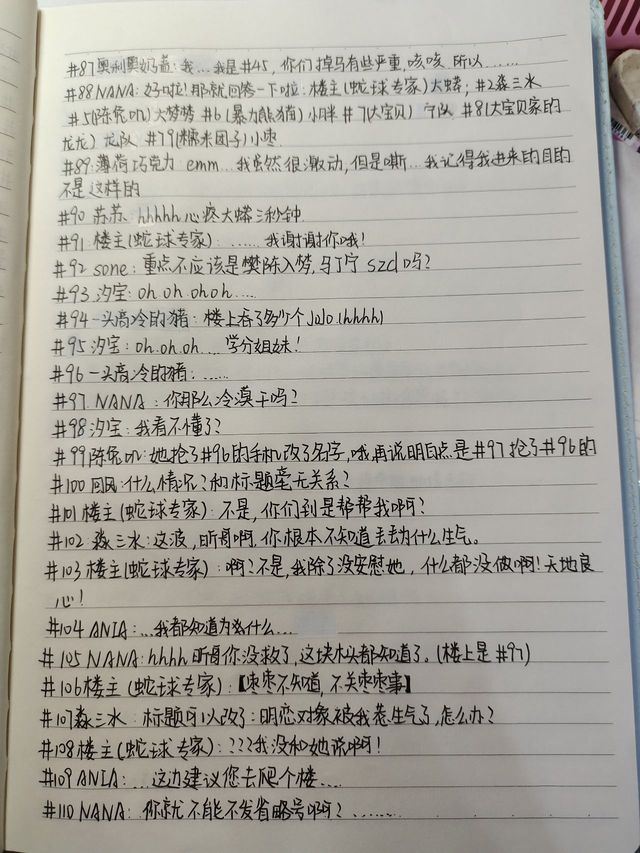 #87奥利奥奶盖:我…我是#45,你们掉马有些严重,咳咳 所以……
#88 NANA:好啦!那就回答一下啦:楼主(蛇球专家)大蟒;#2淼三水
#5(陈兔叽)大梦梦 #6(暴力熊猫)小咩 #7(大宝贝)宁队 #8(大宝贝家的
龙龙)龙队 #79(糯米团子)小枣
#89:薄荷巧克力 emm…我虽然很激动,但是嘶…我记得我进来的目的
不是这样的
#90 苏苏 hhhhh心疼大蟒三秒钟
#91:楼主(蛇球专家):……我谢谢你哦!
#92 sone:重点不应该是樊陈入梦,马丁宁szd吗?
#93汐宝:oh oh ohoh….
#94一头高冷的猪:楼上吞了多少个JoJo(hhhh)
#95汐宝:oh.oh.oh….学分姐妹!
#96一头高冷的猪:……
#97 NANA:你那么冷漠干吗?
#98汐宝:我看不懂了?
#99陈兔叽:她抢了#96的手机改了名字,哦,再说明白点是#97抢了#96的
#100回风:什么情况?和标题毫无关系?
#101楼主(蛇球专家):不是,你们到是帮帮我啊?
#102:淼三水:这波,昕哥啊.你根本不知道 为什么生气。
#103楼主(蛇球专家):啊?不是,我除了没安慰她,什么都没做啊!天地良
心!
#104 ANIA:…我都知道为什么…
#105 NANA:hhhh昕哥你没救了,这块木头都知道了。(楼上是#97)
#106楼主(蛇球专家):【枣枣不知道,不关枣枣事】
#107淼三水:标题可以改了:明恋对象被我惹生气了,怎么办?
#108楼主(蛇球专家):???我没和她说啊!
#109 ANIA:…这边建议您去爬个楼….
#110 NANA:你就不能不发省略号啊?……